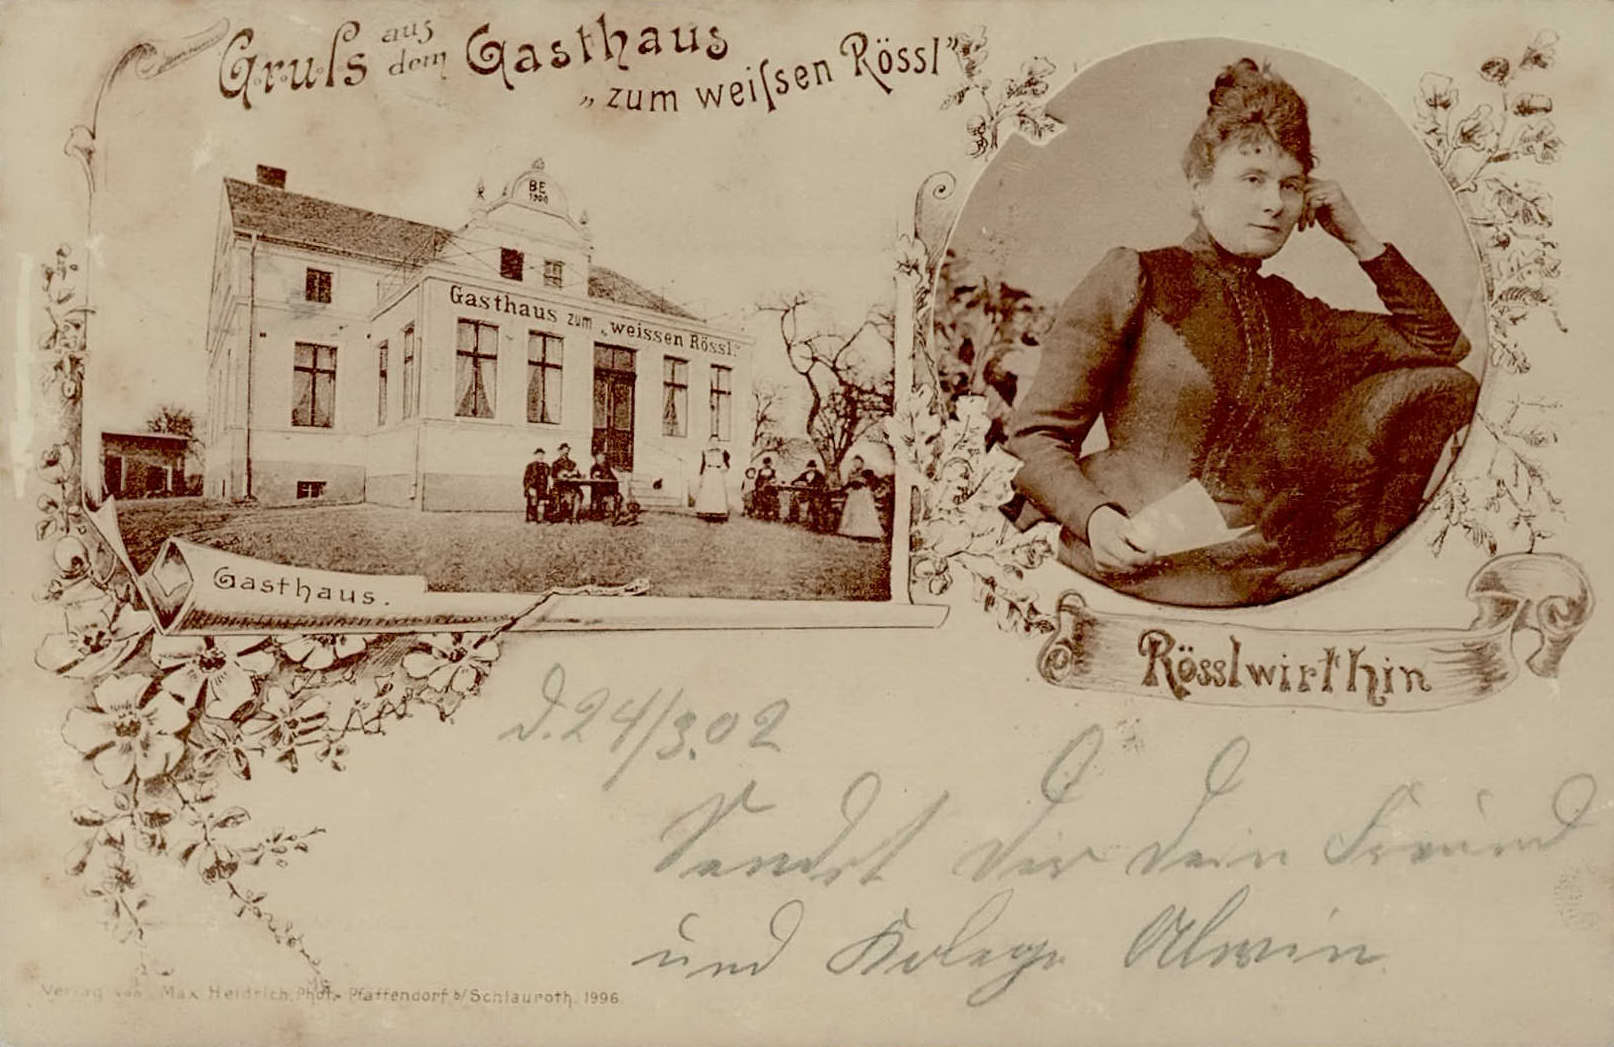 Gruſs aus dem Gasthaus
„zum weiſsen Rössl”
BE
1900
Gasthaus zum „weissen Rössl.”
Gasthaus.
Rösslwirthin
d. 24/3.02
Sendet Dir dein Freund
und Kolege Alwin
Verlag von Max Heidrich, Phot., Pfaffendorf b/Schlauroth. 1996.